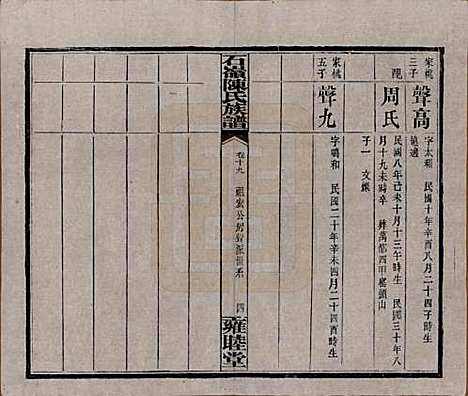 家桃三子
聲高
字太和 民國十年辛酉八月二十四子時生
配
周氏
民國八年己未十月十三午時生 民國三十年八
月十九未時卒 葬萬都四甲窑頭山
子一 文
家桃五子
聲九
字鳴和 民國二十年辛未四月二十四酉時生
石嶺陳氏族譜
卷十九
四
雍睦堂